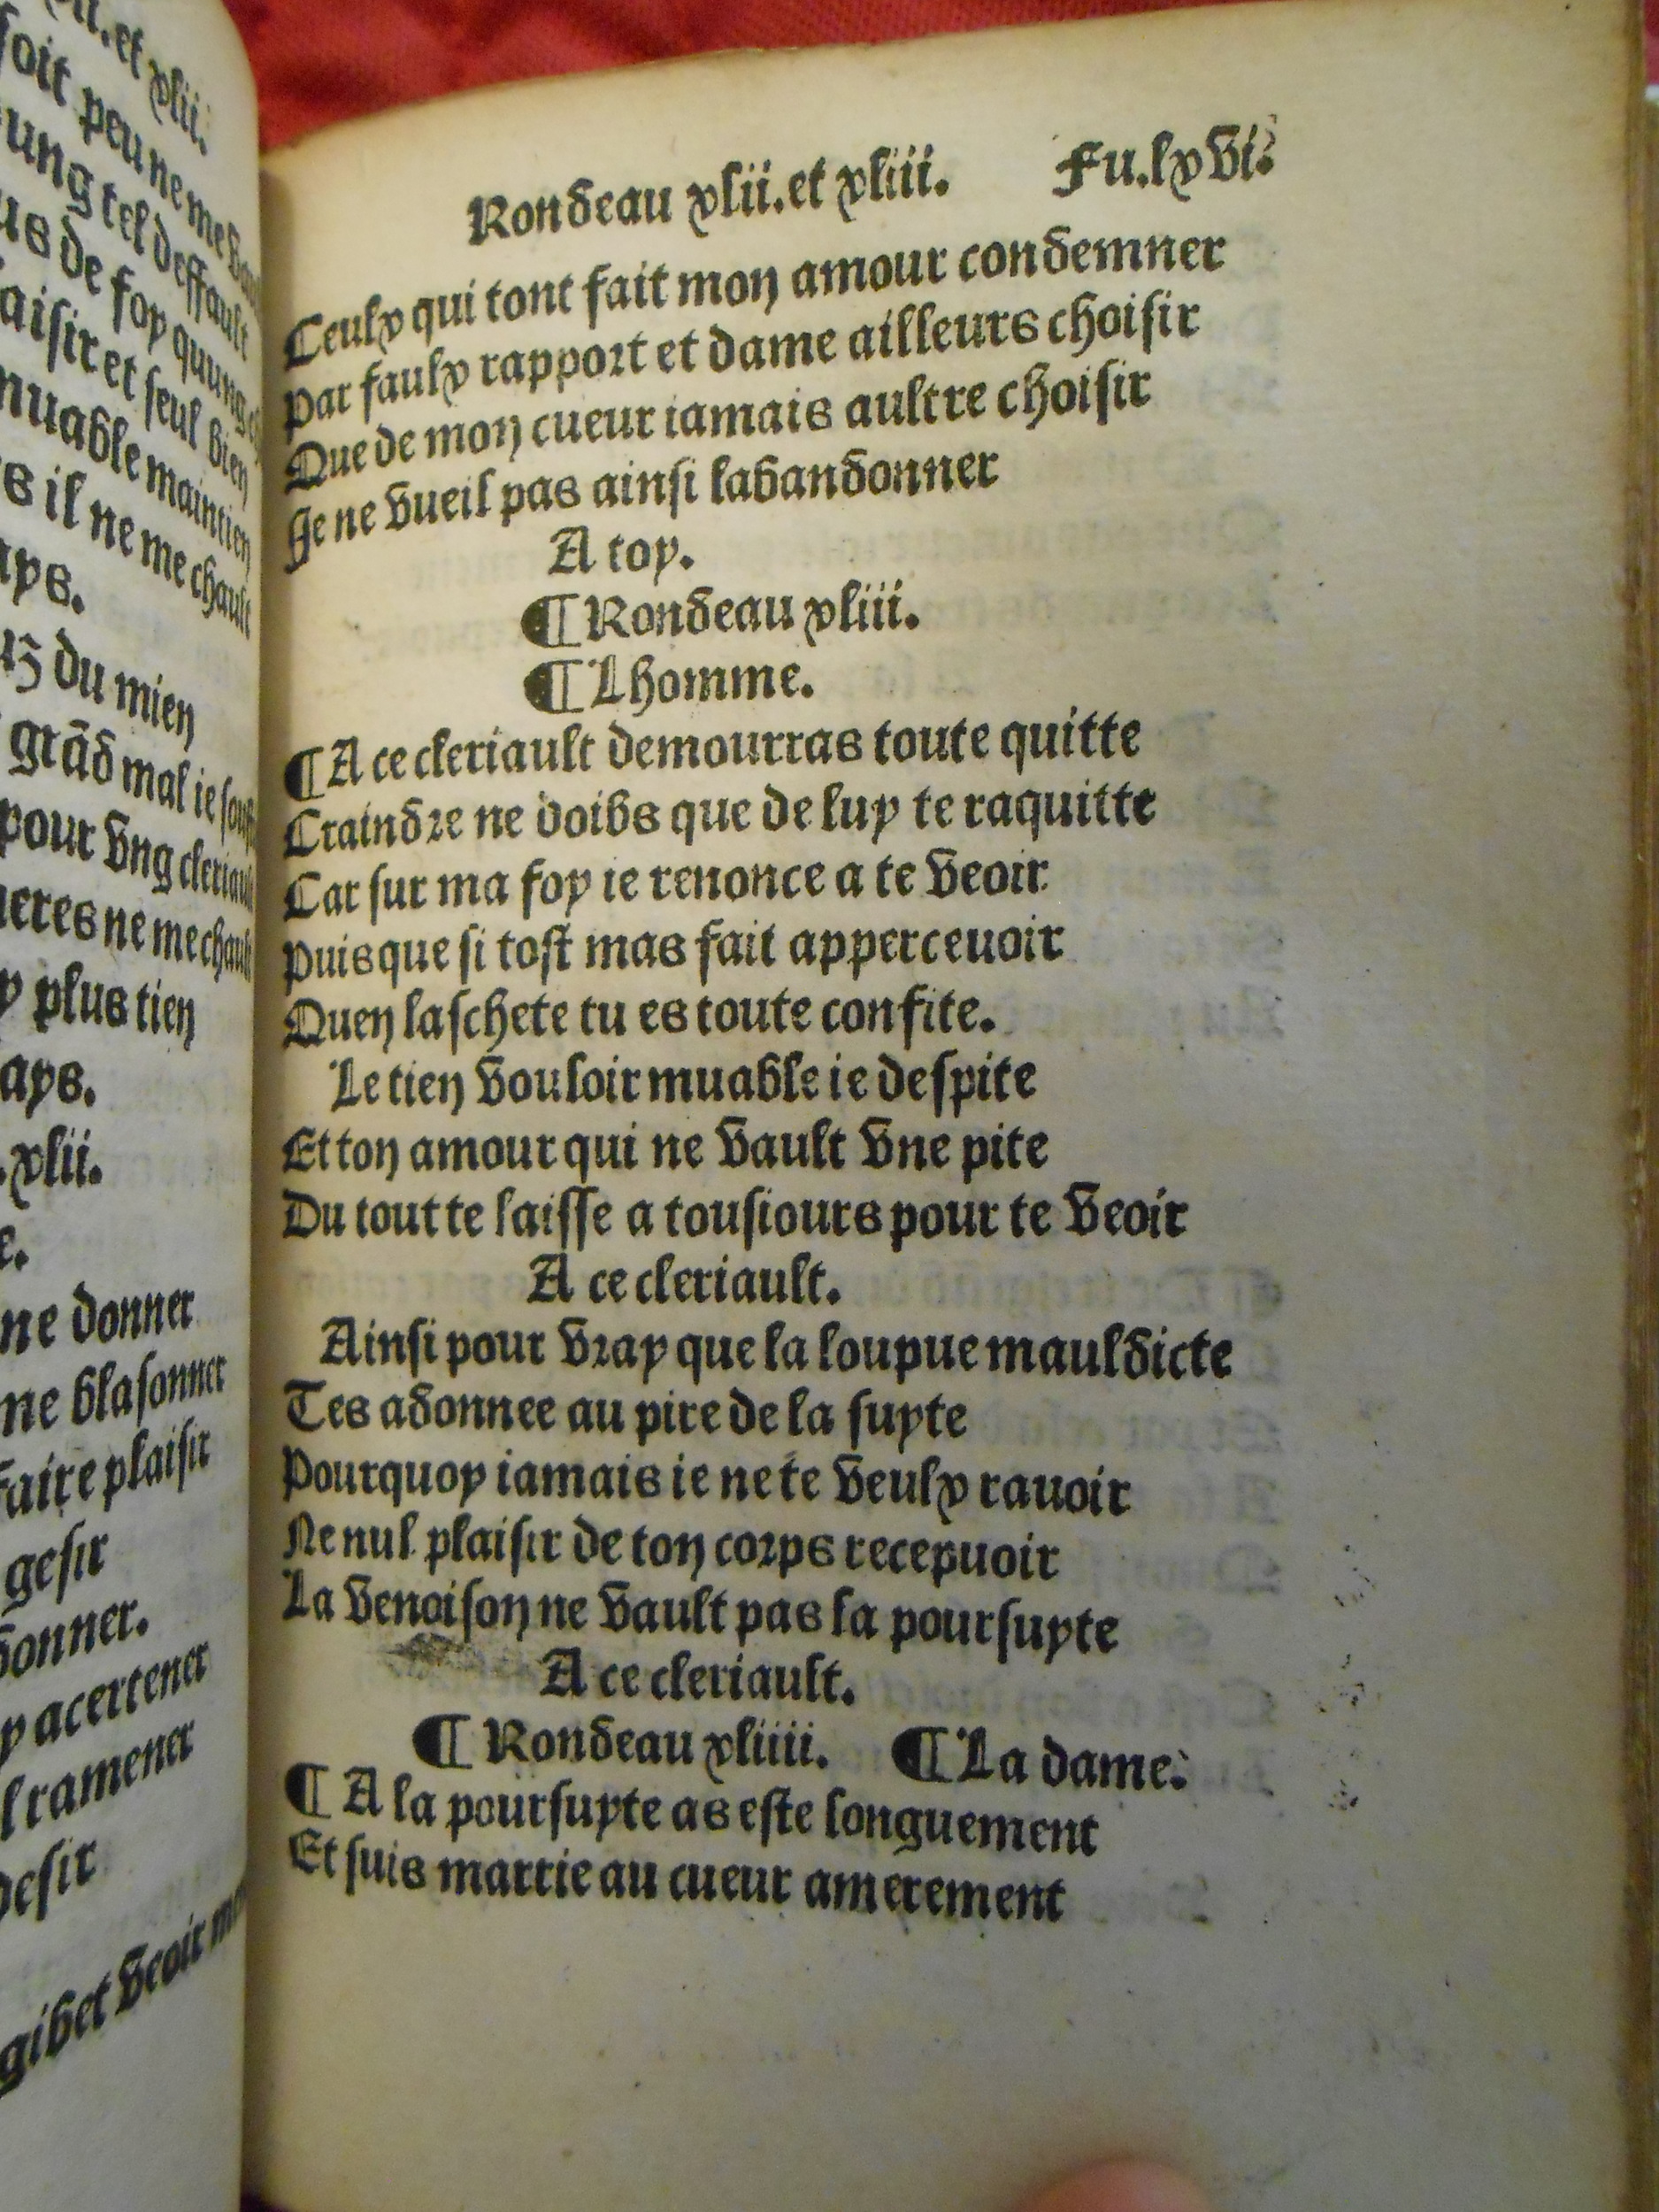 ll. et xlii.
soit peu ne me
ung tel deffault
us de foy quung
aisir et seul bien
muable maintien
s il ne me chault
ays.
du mien
grãd mal ie
pour vng cleriault
ne me chault
y plus tien
ays.
.xlii.
e.
ne donner
ne blasonner
faire plaisir
gesir
donner.
y acertener
l ramener
desir
gibet veoir
Rondeau xlii. et xliii. Fu. lxvi.
Ceulx qui tont fait mon amour condemner
Par faulx rapport et dame ailleurs choisir
Que de mon cueur iamais aultre choisir
Je ne vueil pas ainsi labandonner
A toy.
¶ Rondeau xliii.
¶ Lhomme.
¶ A ce cleriault demourras toute quitte
Craindre ne doibs que de luy te raquitte
Car sur ma foy ie renonce a te veoir
Puisque si tost mas fait apperceuoir
Quen laschete tu es toute confite.
Le tien vouloir muable ie despite
Et ton amour qui ne vault vne pite
Du tout te laisse a tousiours pour te veoir
A ce cleriault.
Ainsi pour vray que la louyue mauldicte
Tes adonnee au pire de la suyte
Pourquoy iamais ie ne te veulx rauoir
Ne nul plaisir de ton corps recepuoir
La venoison ne vault pas la poursuyte
A ce cleriault.
¶ Rondeau xliiii. ¶ La dame.
¶ A la poursuyte as este longuement
Et suis marrie au cueur amerement